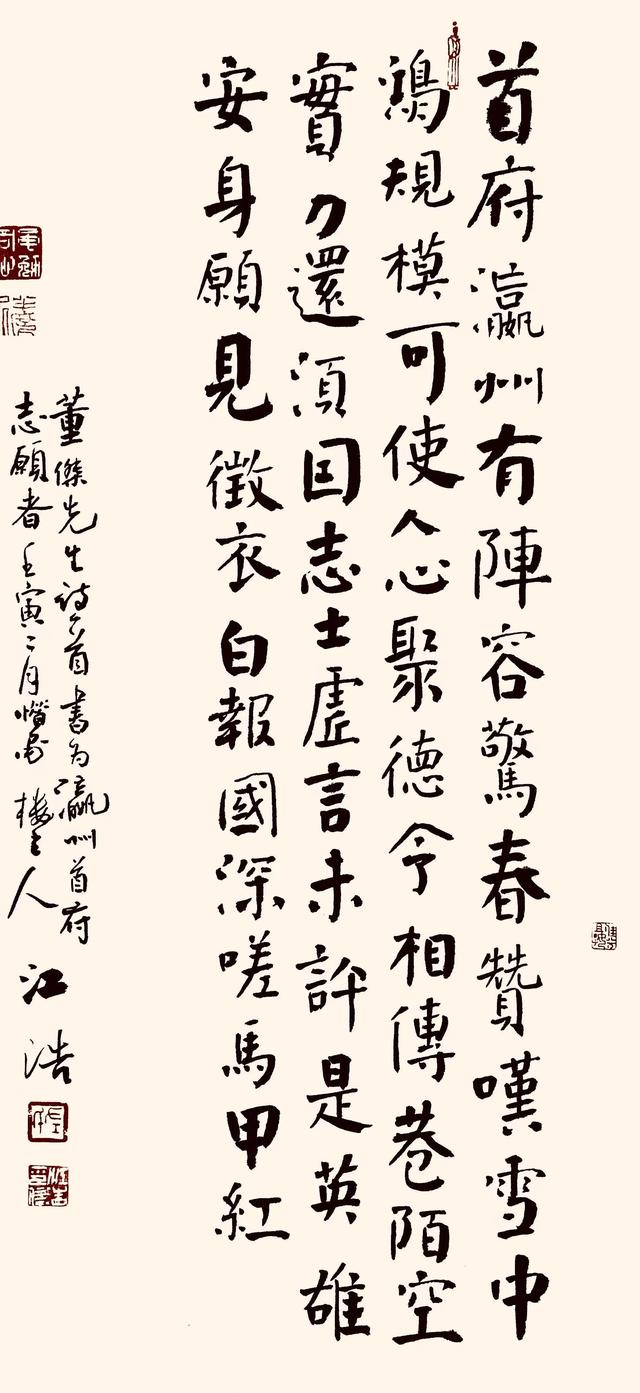 首府瀛州有陣容驚春贊嘆雪中
鴻規模可使人心聚德令相傳巷陌空
實力還須因志士虛言未許是英雄
安身願見徵衣白報國深嗟馬甲紅
董傑先生诗首書为瀛州首府
志願者壬寅二月樓主人江浩